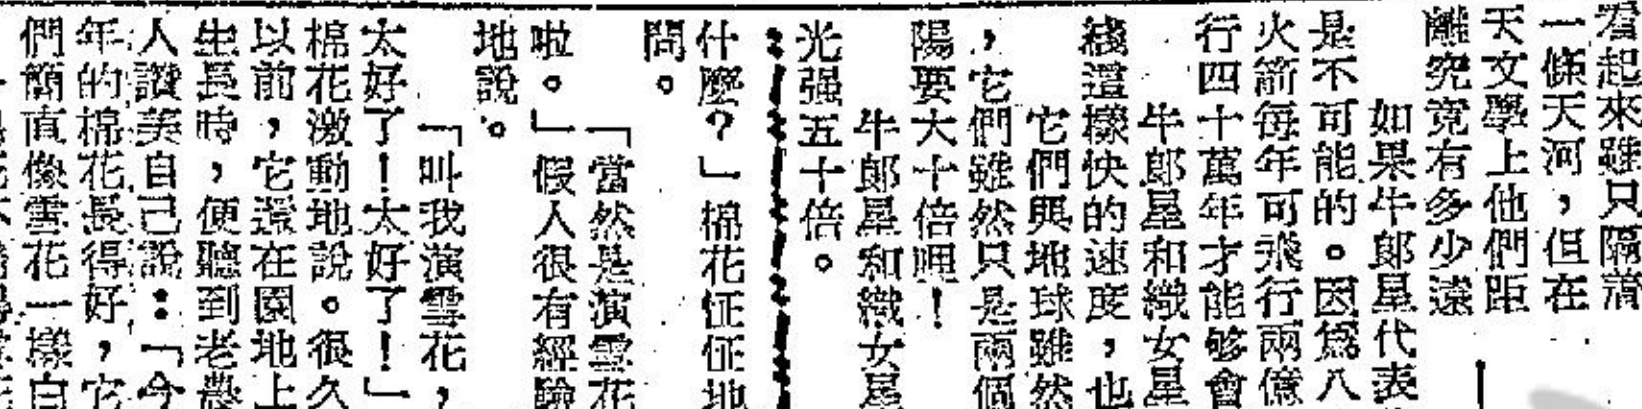 看起來雖只隔着
一條天河，但在
天文學上他們距
離究竟有多少遠
如果牛郎星代表
是不可能的。因爲八
火箭每年可飛行兩億
行四十萬年才能够會
牛郎星和織女星
綫這樣快的速度，也
它們與地球雖然
，它們雖然只是兩個
陽要大十倍哩！
牛郎星和織女星
光强五十倍。
什麼？」棉花怔怔地
問。
「當然是演雪花
啦。」假人很有經驗
地說。
「叫我演雪花，
太好了！太好了！」
棉花激動地說。很久
以前，它還在園地上
生長時，便聽到老農
人讚美自己說：「今
年的棉花長得好，它
們簡直像雪花一樣白